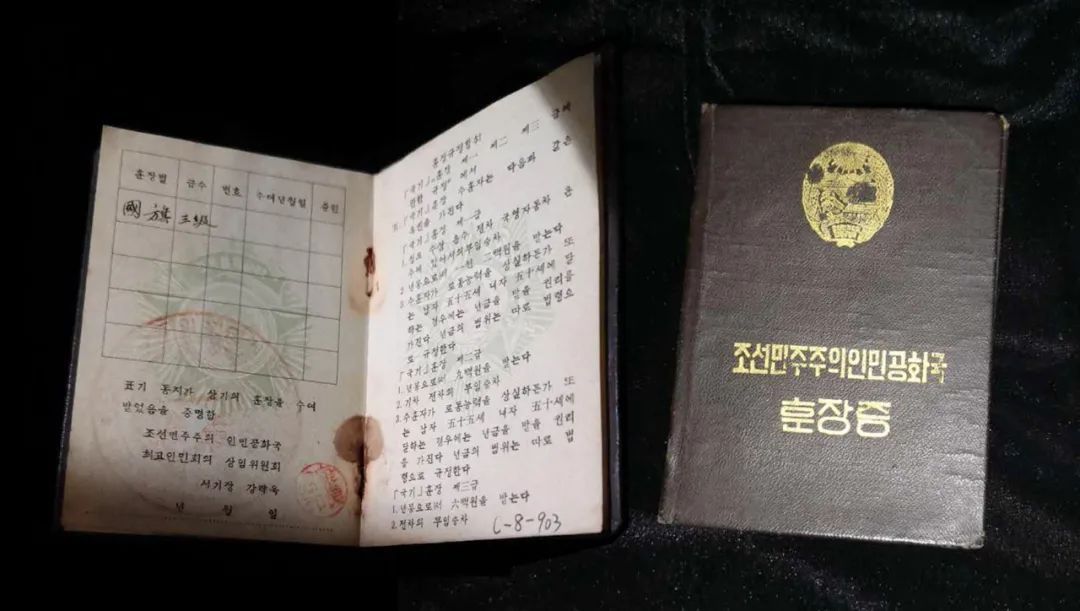 훈장별 급수 번호 수여년월일 증인
國旗 三級
표기 동지가 상기의 훈장을 수여
받었음을 증명함
조선민주주의 인민공화국
최고인민회의 상임위원회
서기장 강량욱
년 월 일
훈장규정발취
「국기」훈장 제一 제二 제三 급에
관한 규정에서
「국기」훈장 수훈자는 다음과 같은
특전을 가진다
「국기」훈장 제一급
1. 철도 수상 음수 전차 국영자동차 운
수에 있어서의 무임승차
2. 년봉으로써 一천 二백원을 받는다
3. 수훈자가 로동능력을 상실하든가 또
는 남자 五十五세 녀자 五十세에 달
하는 경우에는 년금을 받을 권리를
가진다 년금의 범위는 따로 법령으
로 규정한다
「국기」훈장 제二급
1. 년봉으로써 九백원을 받는다
2. 기차 전차의 무임승차
3. 수훈자가 로동능력을 상실하든가 또
는 남자 五十五세 녀자 五十세에
달하는 경우에는 년금을 받을 권리
을 가진다 년금의 범위는 따로 법
령으로 규정한다
「국기」훈장 제三급
1. 년봉으로써 六백원을 받는다
2. 전차의 무임승차
C-8-903
조선민주주의인민공화국
훈장증